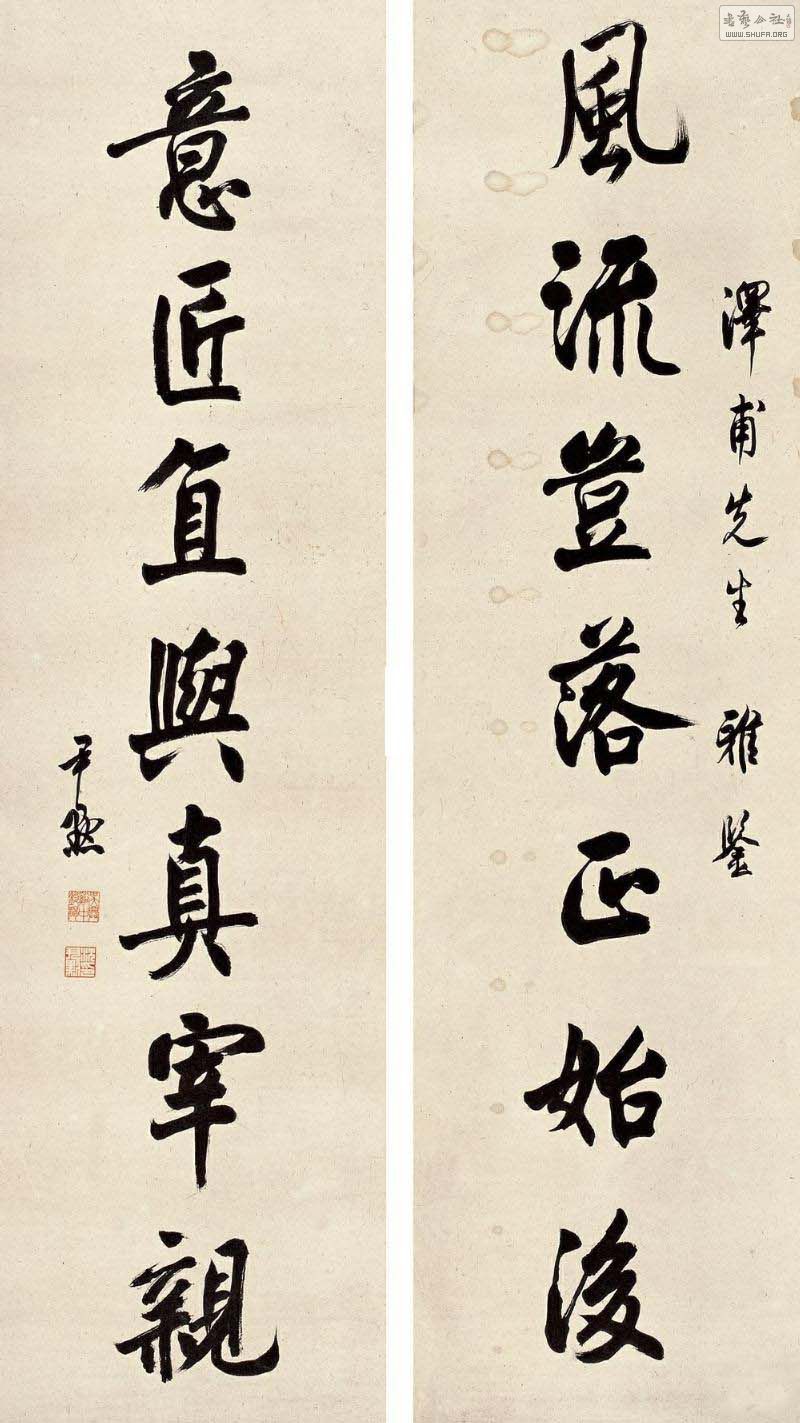 澤甫先生 雅鑒
風流豈落正始後
意匠直與真宰親
尹默
書藝公社
WWW.SHUFA.ORG